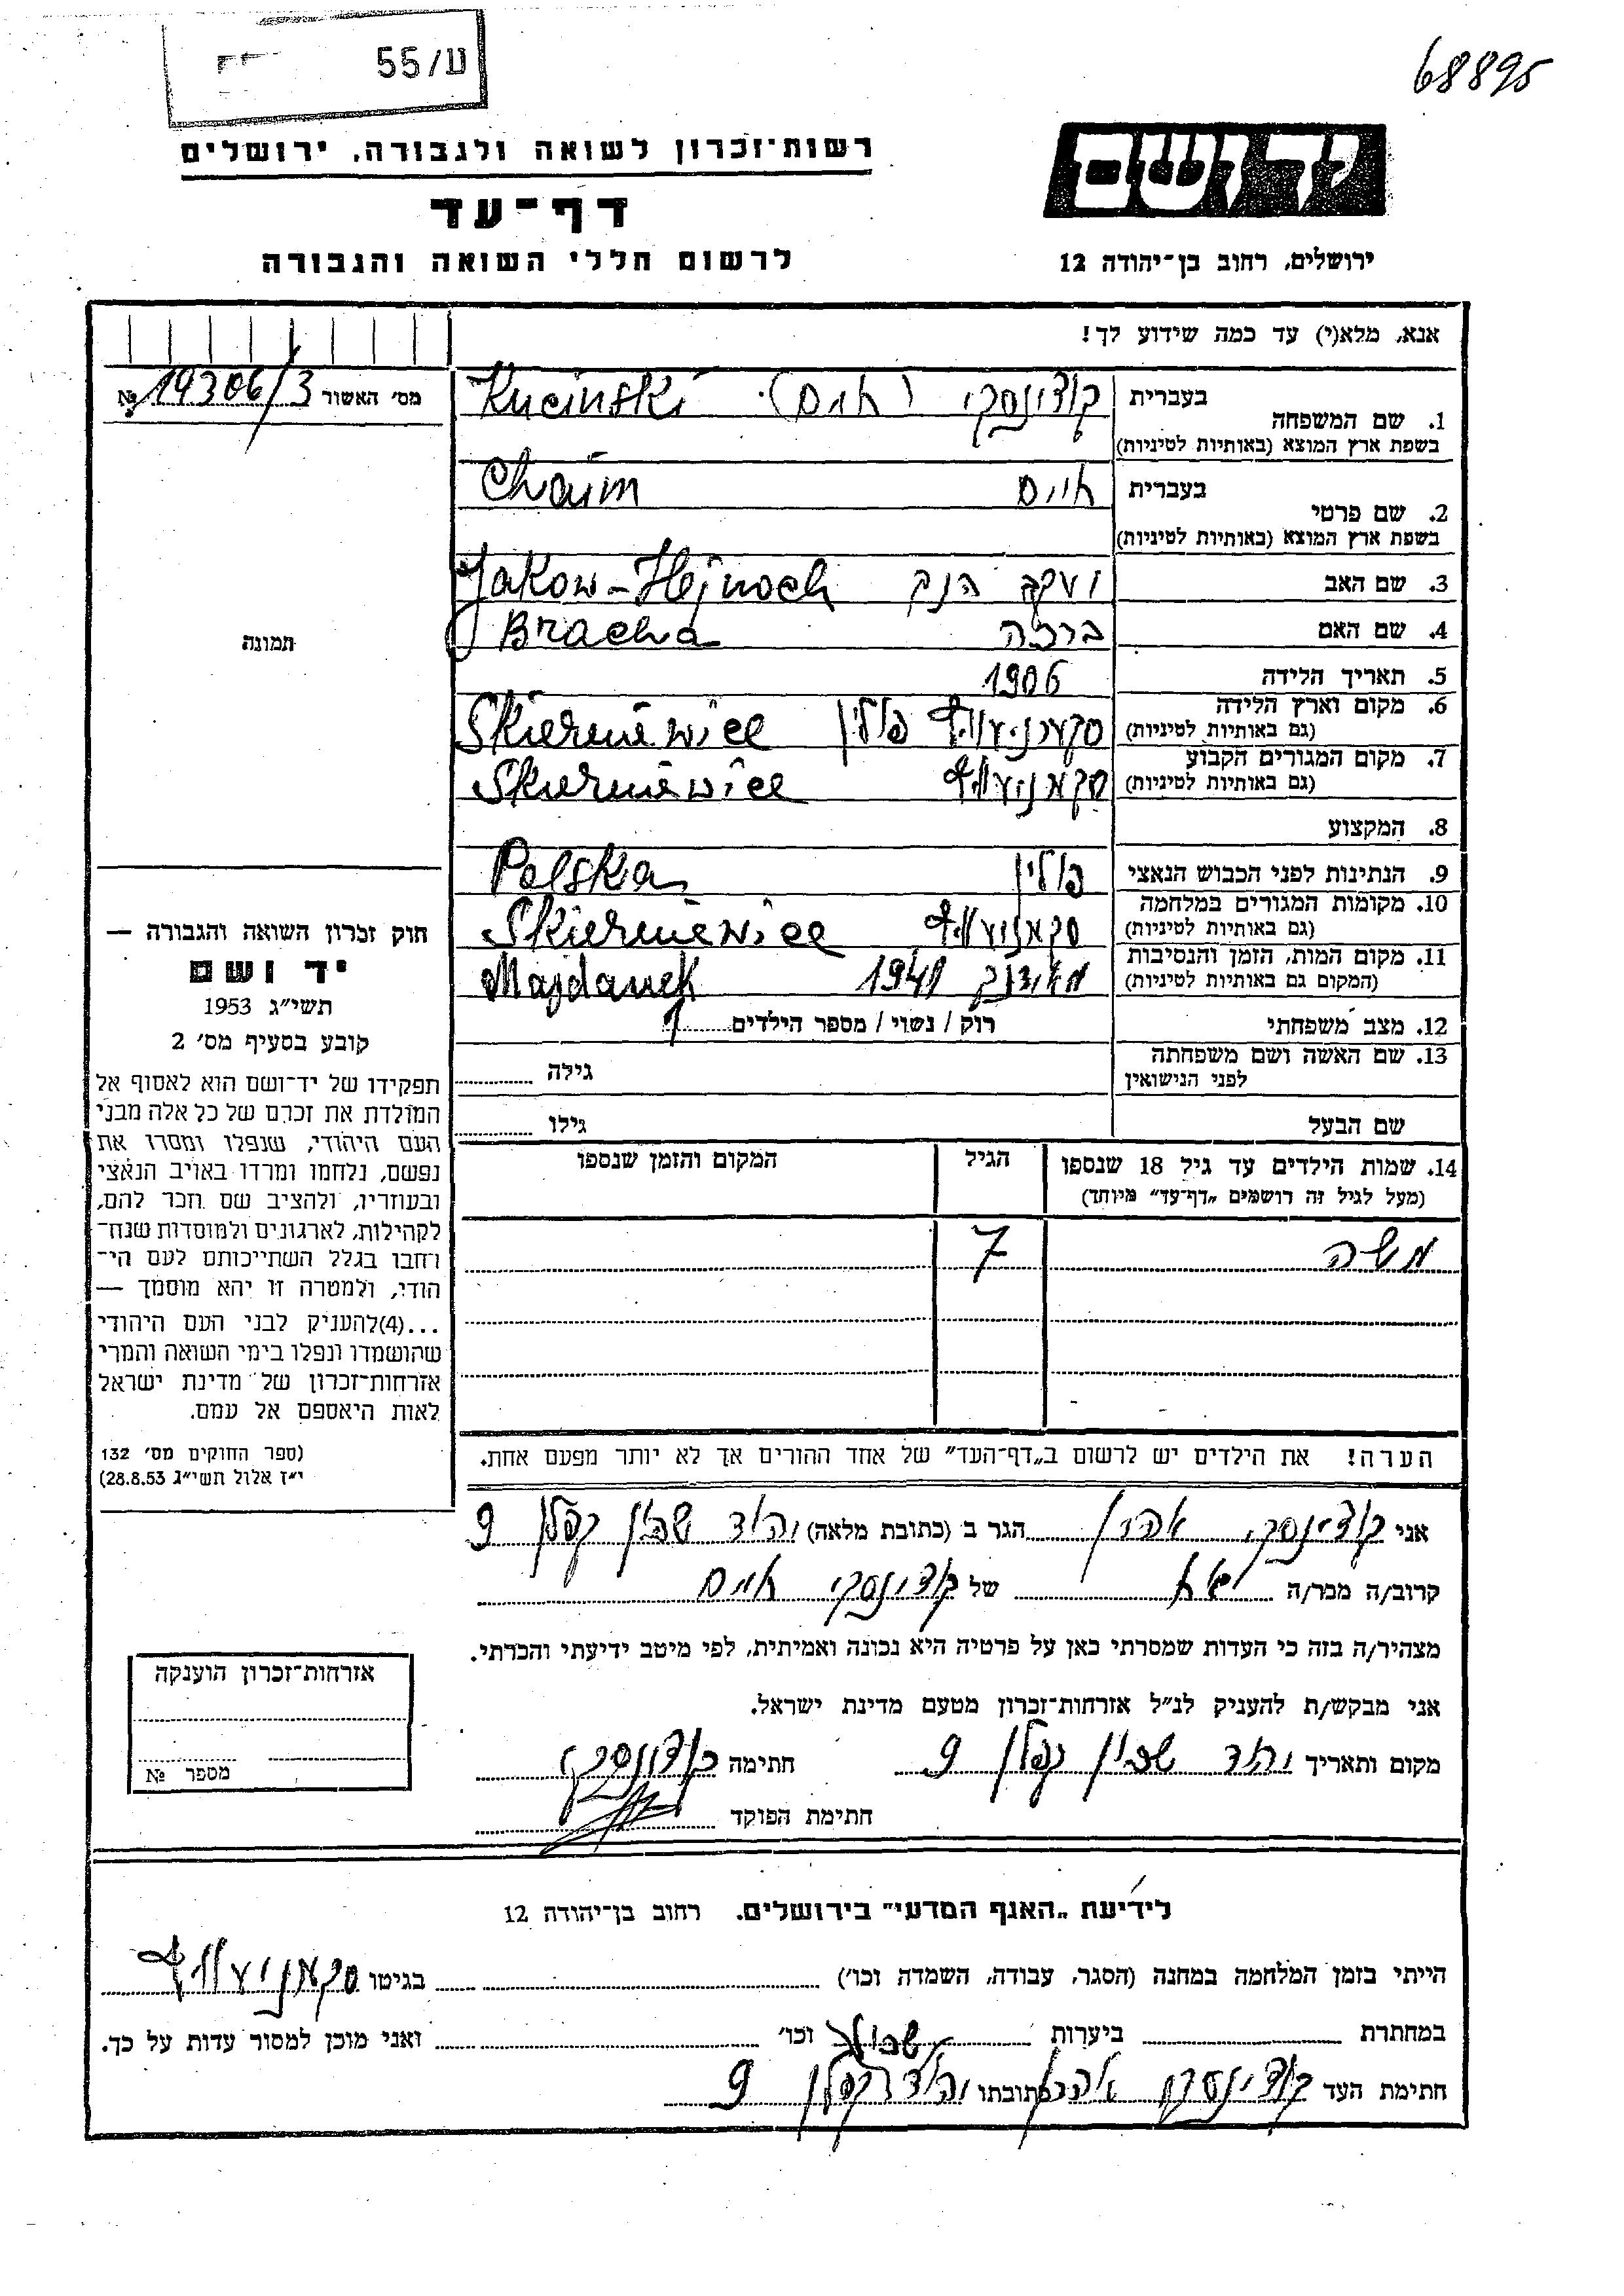 55/ע
68895
רשות־זכרון לשואה ולגבורה, ירושלים
יד ושם
דף־עד
לרשום חללי השואה והגבורה
ירושלים, רחוב בן־יהודה 12
אנא, מלא(י) עד כמה שידוע לך!
מס׳ האשור № 19306/3
1. שם המשפחה בעברית קוצ'ינסקי (חיים) Kucinski
בשפת ארץ המוצא (באותיות לטיניות)
2. שם פרטי בעברית חיים Chaim
בשפת ארץ המוצא (באותיות לטיניות)
3. שם האב יעקב הנך Jakow-Hejnoch
4. שם האם ברכה Bracha
5. תאריך הלידה 1906
6. מקום וארץ הלידה פולין Skierniewice
(גם באותיות לטיניות)
7. מקום המגורים הקבוע Skierniewice
(גם באותיות לטיניות)
8. המקצוע
9. הנתינות לפני הכבוש הנאצי פולין Polska
10. מקומות המגורים במלחמה Skierniewice
(גם באותיות לטיניות)
11. מקום המות, הזמן והנסיבות 1941 Majdanek
(המקום גם באותיות לטיניות)
12. מצב משפחתי רוק / נשוי / מספר הילדים 1
13. שם האשה ושם משפחתה
לפני הנישואין גילה
שם הבעל גילו
14. שמות הילדים עד גיל 18 שנספו הגיל המקום והזמן שנספו
(מעל לגיל זה רושמים „דף־עד״ מיוחד)
משה 7
הערה! את הילדים יש לרשום ב„דף־העד״ של אחד ההורים אך לא יותר מפעם אחת.
תמונה
חוק זכרון השואה והגבורה —
יד ושם
תשי״ג 1953
קובע בסעיף מס׳ 2
תפקידו של יד־ושם הוא לאסוף אל
המולדת את זכרם של כל אלה מבני
העם היהודי, שנפלו ומסרו את
נפשם, נלחמו ומרדו באויב הנאצי
ובעוזריו, ולהציב שם וזכר להם,
לקהילות, לארגונים ולמוסדות שנח־
רבו בגלל השתייכותם לעם הי־
הודי, ולמטרה זו יהא מוסמך —
...(4)להעניק לבני העם היהודי
שהושמדו ונפלו בימי השואה והמרי
אזרחות־זכרון של מדינת ישראל
לאות היאספם אל עמם.
(ספר החוקים מס׳ 132
י״ז אלול תשי״ג 28.8.53)
אני קוצ'ינסקי אהרן הגר ב (כתובת מלאה) יהוד שכון קפלן 9
קרוב/ה מכר/ה של קוצ'ינסקי חיים
מצהיר/ה בזה כי העדות שמסרתי כאן על פרטיה היא נכונה ואמיתית, לפי מיטב ידיעתי והכרתי.
אני מבקש/ת להעניק לנ״ל אזרחות־זכרון מטעם מדינת ישראל.
מקום ותאריך יהוד שכון קפלן 9 חתימה קוצ'ינסקי
חתימת הפוקד
אזרחות־זכרון הוענקה
מספר №
לידיעת „האגף המדעי״ בירושלים. רחוב בן־יהודה 12
הייתי בזמן המלחמה במחנה (הסגר, עבודה, השמדה וכו׳) בגיטו
במחתרת ביערות וכו׳ ואני מוכן למסור עדות על כך.
חתימת העד קוצ'ינסקי אהרן כתובתו יהוד שכון קפלן 9